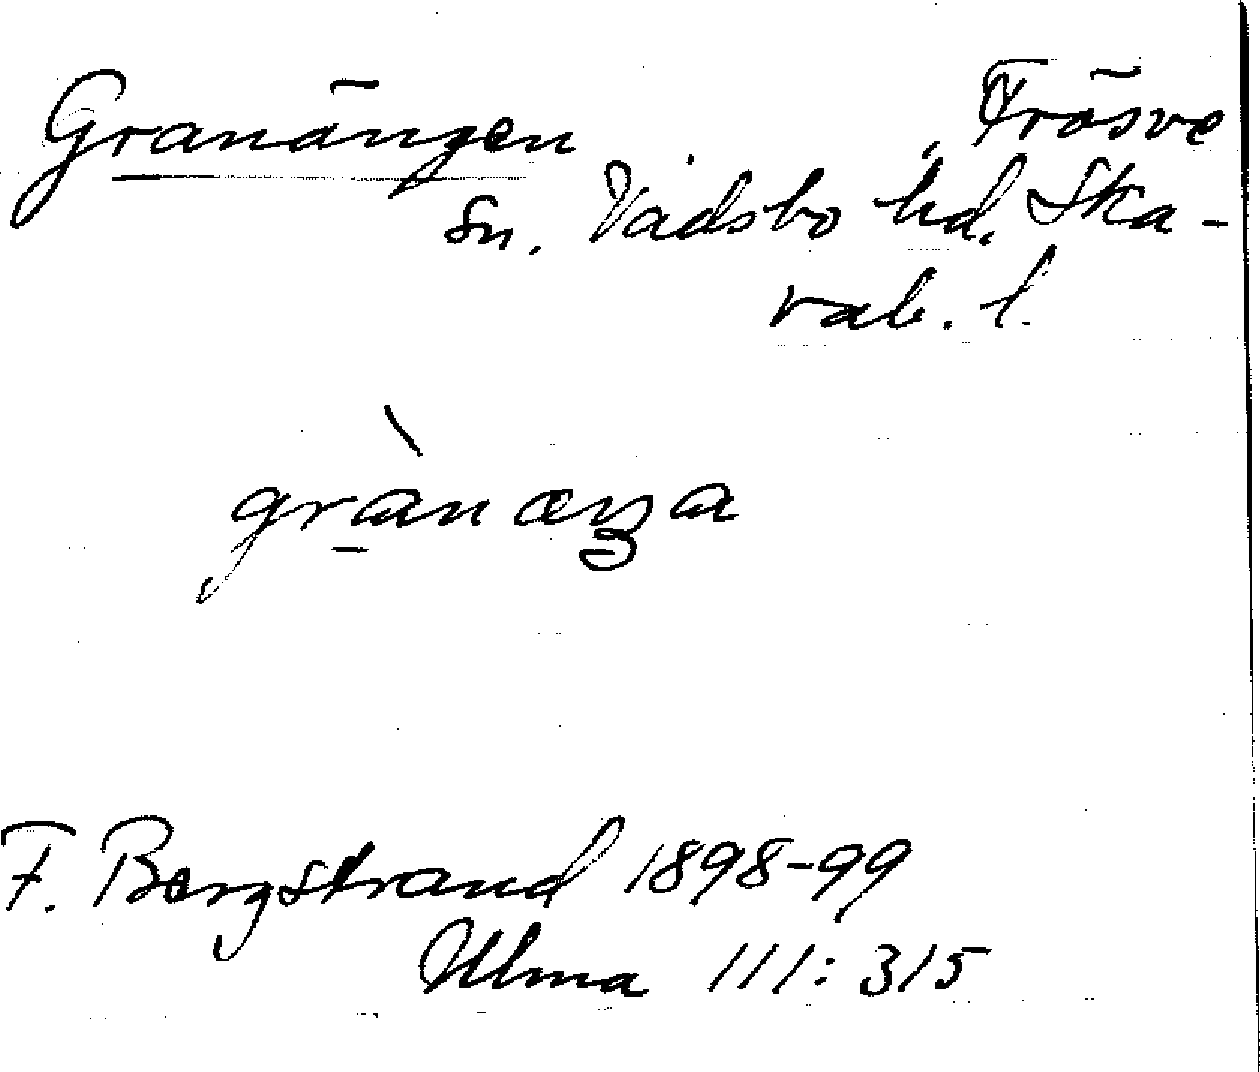 Granängen, Frösve
sn. Vadsbo hd. Ska-
rab. l.
grànæŋa
F. Bergstrand 1898-99
Ulma 111:315